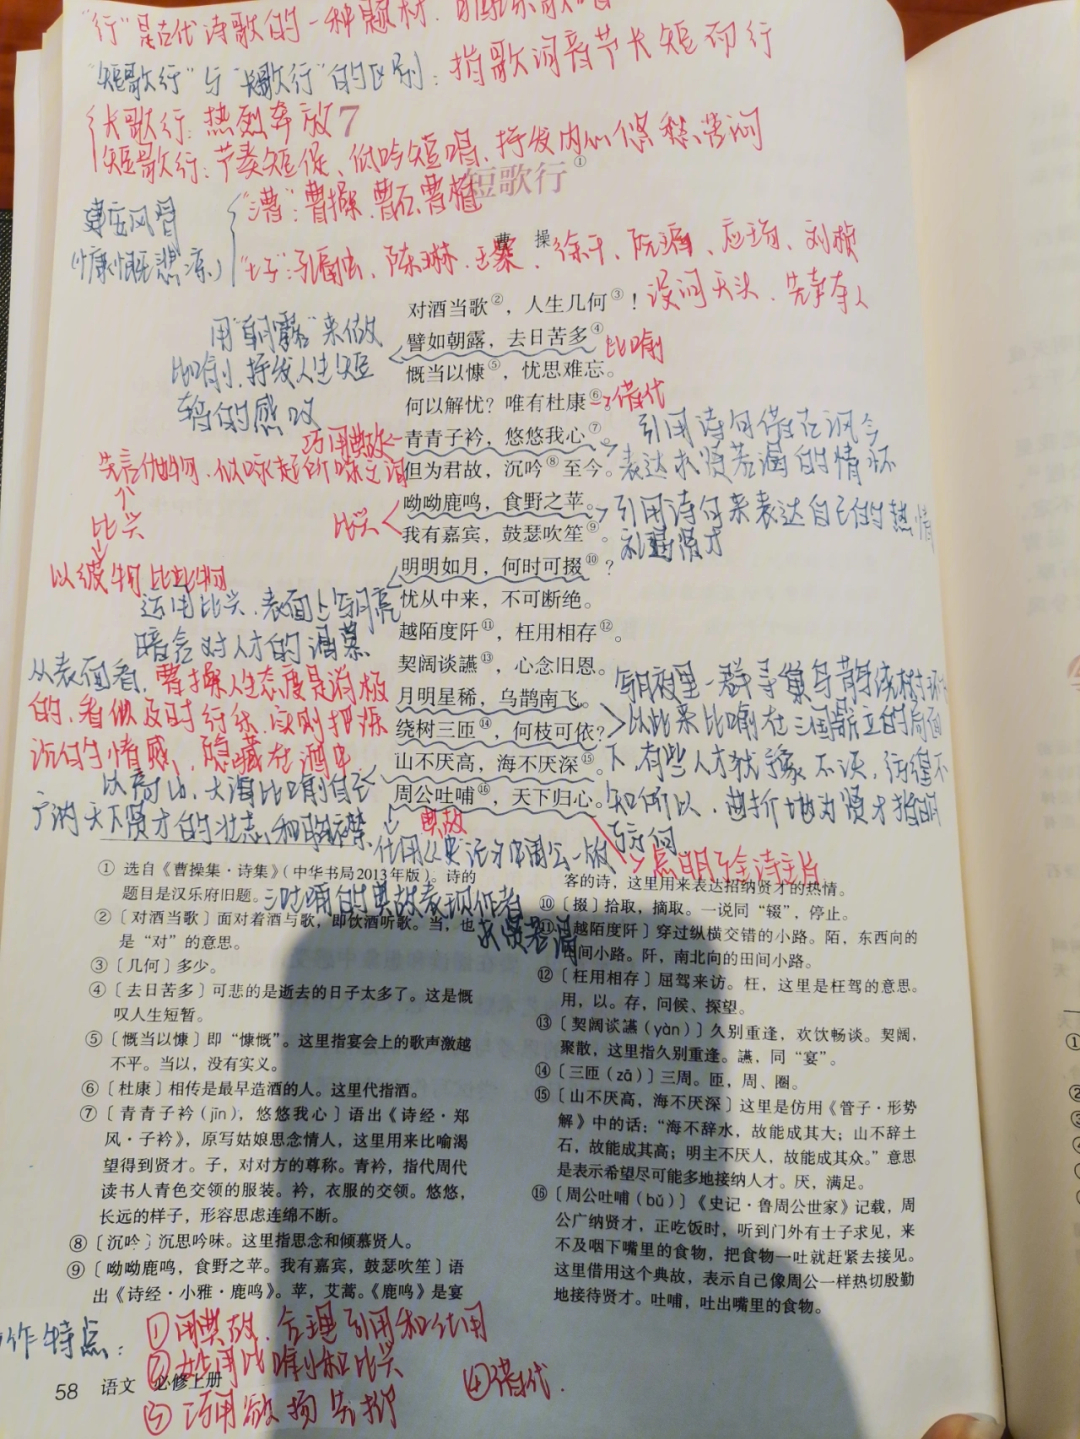 "行"是古代诗歌的一种题材.
"短歌行"与"长歌行"的区别: 指歌词音节长短而行
长歌行: 热烈奔放
7
短歌行: 节奏短促、低吟短唱、抒发内心忧愁苦闷
短歌行①
建安风骨
(慷慨悲凉)
"三曹": 曹操、曹丕、曹植
曹 操
"七子": 孔融、陈琳、王粲、徐干、阮瑀、应玚、刘桢
对酒当歌②，人生几何③！
譬如朝露，去日苦多④
比喻
用"朝露"来做
比喻,抒发人生短
暂的感叹
慨当以慷⑤，忧思难忘。
何以解忧？唯有杜康⑥
借代
青青子衿，悠悠我心⑦
巧用典故
引用诗句借古讽今
表达求贤若渴的情怀
但为君故，沉吟⑧至今。
先言他物,以咏起所咏之词
比兴
以彼物比此物
呦呦鹿鸣，食野之苹。
我有嘉宾，鼓瑟吹笙⑨。
比兴
引用诗句来表达自己的热情
礼遇贤才
明明如月，何时可掇⑩？
运用比兴、表面上写月亮
暗含对人才的渴慕
忧从中来，不可断绝。
越陌度阡⑪，枉用相存⑫。
契阔谈䜩⑬，心念旧恩。
从表面看,曹操人生态度是消极
的,看似及时行乐,实则把深
沉的情感、隐藏在酒中
月明星稀，乌鹊南飞。
绕树三匝⑭，何枝可依？
以此来比喻在三国鼎立的局面
下,有些人才犹豫不决,彷徨不
知所以、
山不厌高，海不厌深⑮。
周公吐哺⑯，天下归心。
以高山、大海比喻自己
广纳天下贤才的壮志和胸襟
典故
点明全诗主旨
求贤若渴
① 选自《曹操集·诗集》（中华书局2013年版）。诗的
题目是汉乐府旧题。
②〔对酒当歌〕面对着酒与歌，即饮酒听歌。当，也
是“对”的意思。
③〔几何〕多少。
④〔去日苦多〕可悲的是逝去的日子太多了。这是慨
叹人生短暂。
⑤〔慨当以慷〕即“慷慨”。这里指宴会上的歌声激越
不平。当以，没有实义。
⑥〔杜康〕相传是最早造酒的人。这里代指酒。
⑦〔青青子衿（jīn），悠悠我心〕语出《诗经·郑
风·子衿》，原写姑娘思念情人，这里用来比喻渴
望得到贤才。子，对对方的尊称。青衿，指代周代
读书人青色交领的服装。衿，衣服的交领。悠悠，
长远的样子，形容思虑连绵不断。
⑧〔沉吟〕沉思吟味。这里指思念和倾慕贤人。
⑨〔呦呦鹿鸣，食野之苹。我有嘉宾，鼓瑟吹笙〕语
出《诗经·小雅·鹿鸣》。苹，艾蒿。《鹿鸣》是宴
客的诗，这里用来表达招纳贤才的热情。
⑩〔掇〕拾取，摘取。一说同“辍”，停止。
⑪〔越陌度阡〕穿过纵横交错的小路。陌，东西向的
田间小路。阡，南北向的田间小路。
⑫〔枉用相存〕屈驾来访。枉，这里是枉驾的意思。
用，以。存，问候、探望。
⑬〔契阔谈䜩（yàn）〕久别重逢，欢饮畅谈。契阔，
聚散，这里指久别重逢。䜩，同“宴”。
⑭〔三匝（zā）〕三周。匝，周、圈。
⑮〔山不厌高，海不厌深〕这里是仿用《管子·形势
解》中的话：“海不辞水，故能成其大；山不辞土
石，故能成其高；明主不厌人，故能成其众。”意思
是表示希望尽可能多地接纳人才。厌，满足。
⑯〔周公吐哺（bǔ）〕《史记·鲁周公世家》记载，周
公广纳贤才，正吃饭时，听到门外有士子求见，来
不及咽下嘴里的食物，把食物一吐就赶紧去接见。
这里借用这个典故，表示自己像周公一样热切殷勤
地接待贤才。吐哺，吐出嘴里的食物。
作特点:
①用典故、合理引用和化用
②妙用比喻和比兴
③巧用欲扬先抑
④借代.
58 语文 必修上册